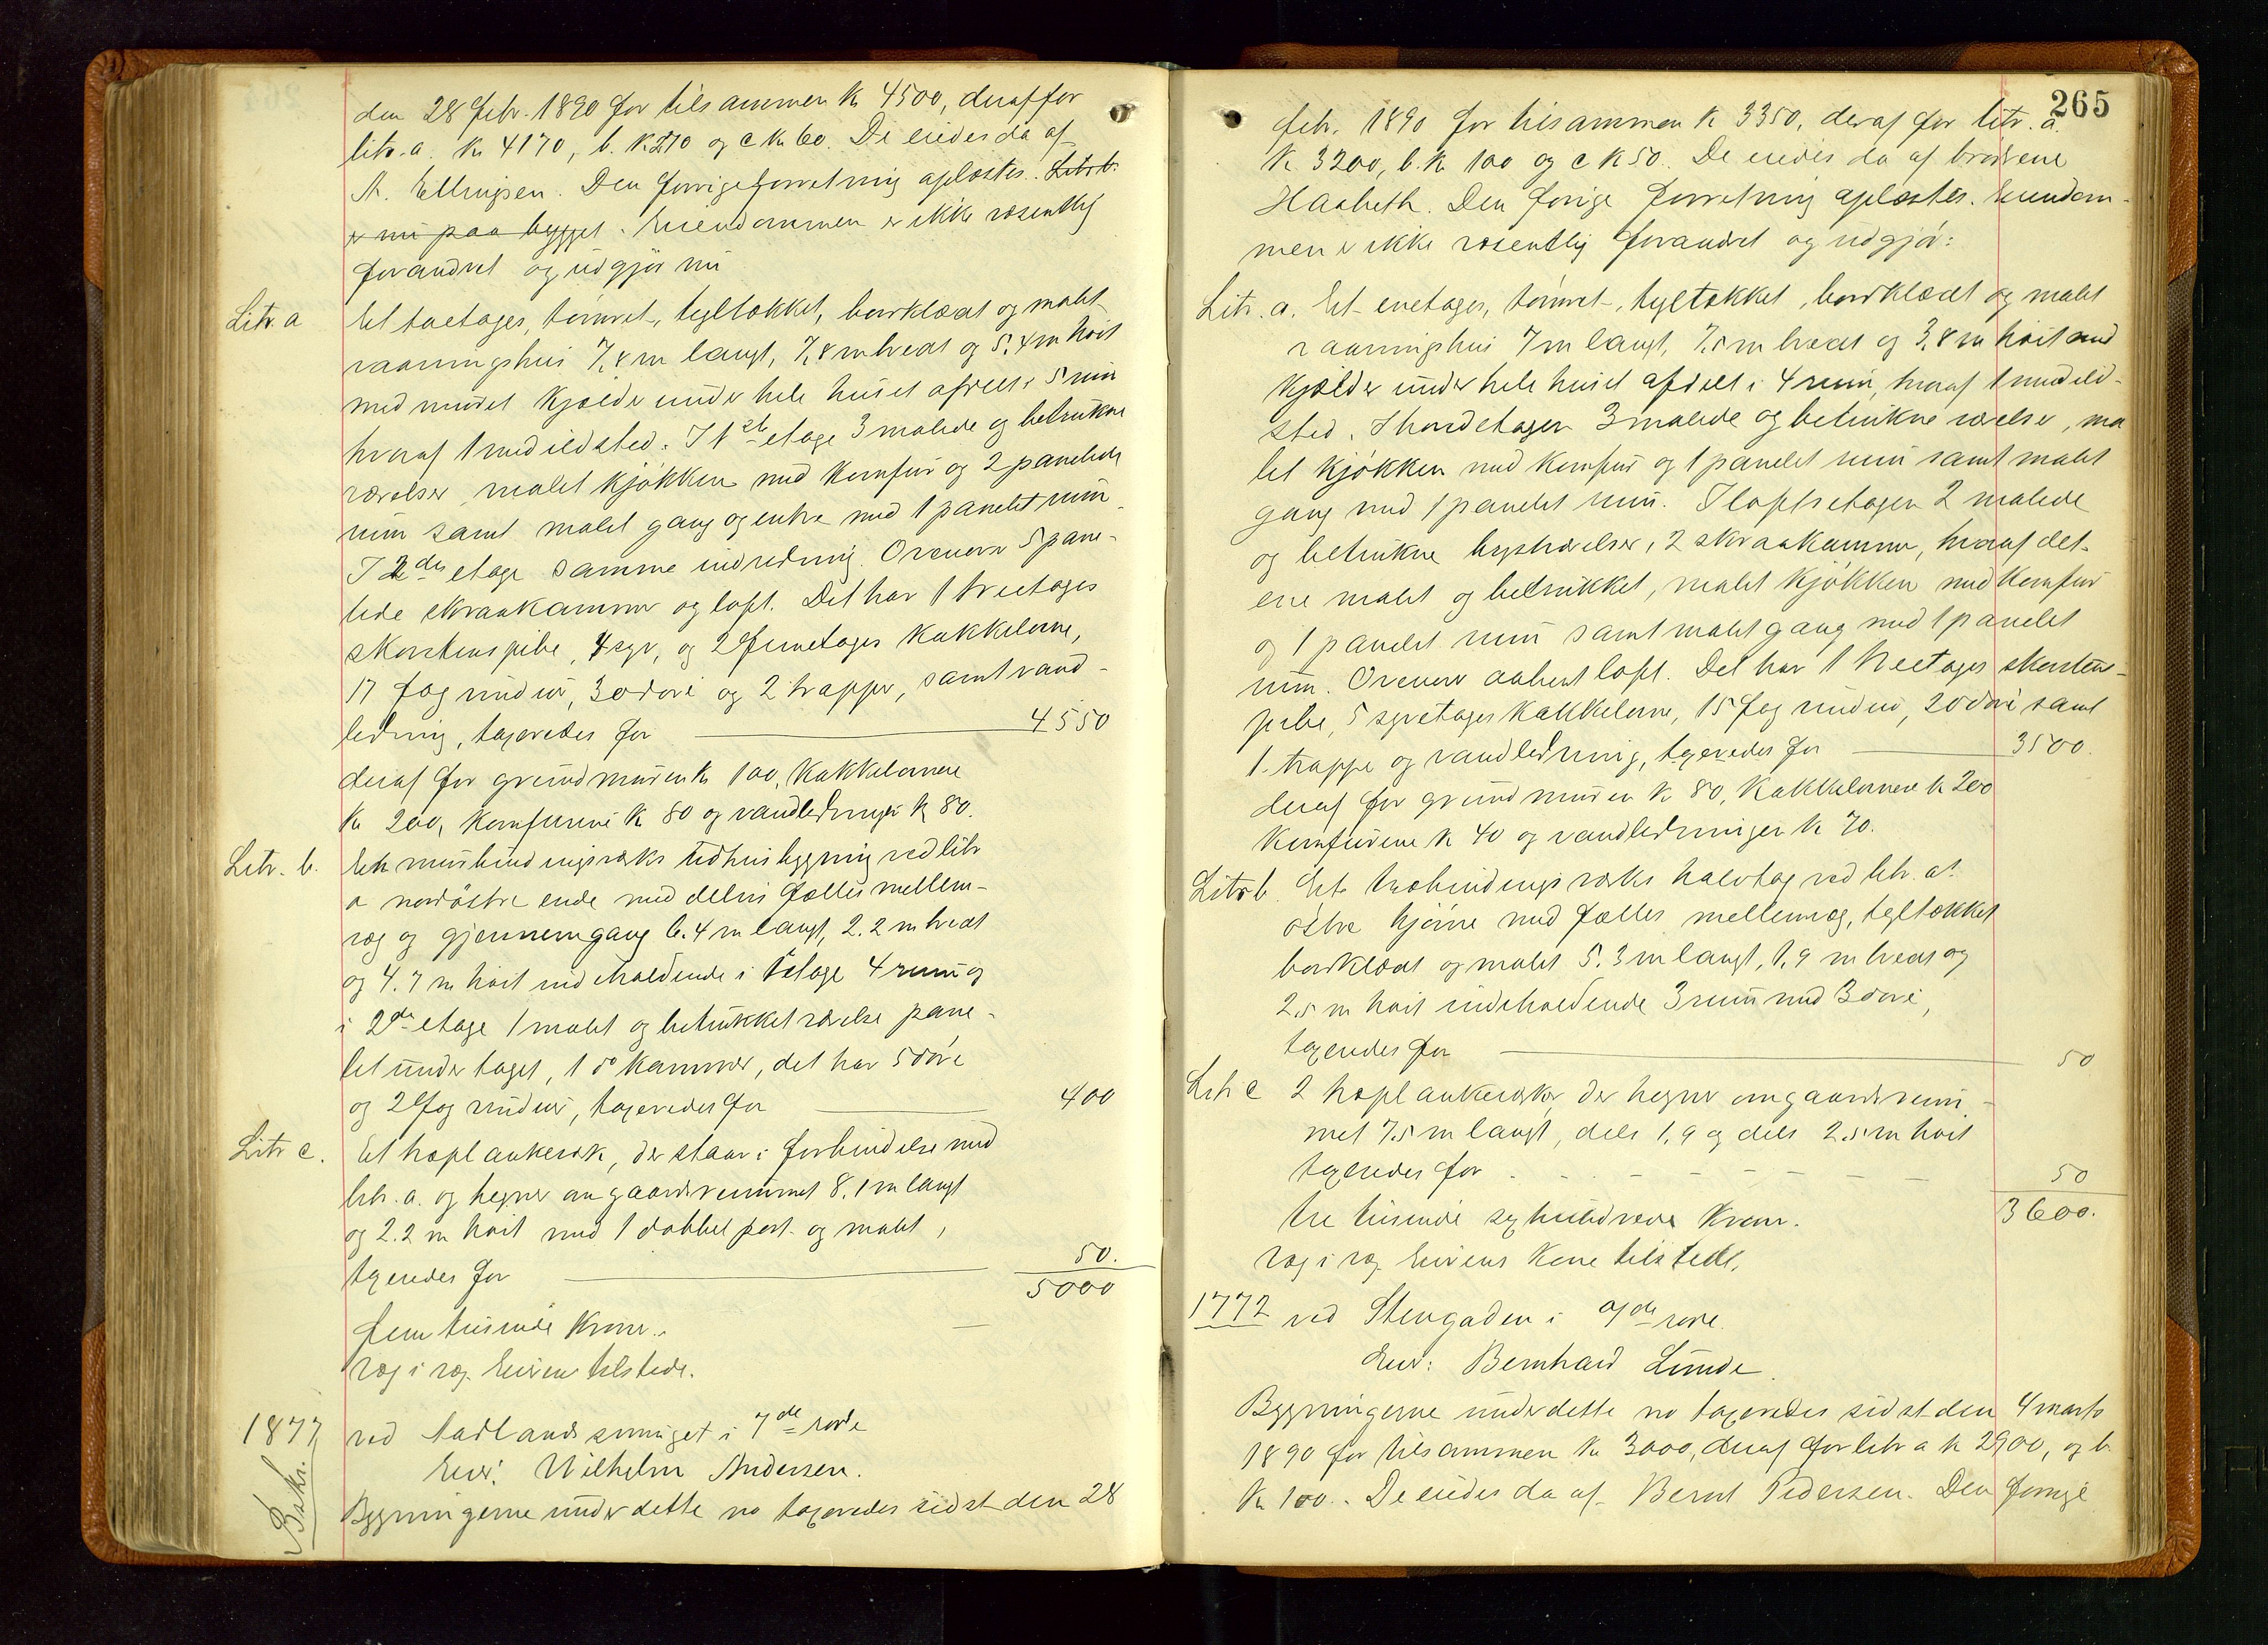 den 28 febr. 1890 for tilsammen K 4500, deraf for
litr. a. Kr 4170, b. K. 270 og c Kr 60. De eiedes da af
A. Ellingsen. Den forrige forretning oplæstes. Litr b.
er nu paa bygget. Eiendommen er ikke væsentlig
forandret og udgjør nu
Litr. a Et toetages, tømret, tegltækket, bordklædt og malet
vaaningshus 7,8 m langt, 7,8 m bredt og 5.4 m høit
med muret kjælder under hele huset afdelt i 5 rum
hvoraf 1 med ildsted. I 1ste etage 3 malede og betrukne
værelser malet kjøkken med komfur og 2 panelede
rum samt malet gang og entre med 1 panelet rum.
I 2den etage samme indredning. Ovenover 5 pane-
lede skraakammer og loft. Det har 1 treetages
skorstenspibe, 4 syv, og 2 femetages kakkelovne,
17 fag vinduer, 30 døre og 2 trapper, samt vand-
ledning, taxeredes for 4550
deraf for grundmuren Kr 100, kakkelovnene
Kr 200, komfurene K 80 og vandledningen K 80.
Litr. b. En murbindingsværks udhusbygning ved litr
a nordøstre ende med delvis fælles mellem-
væg og gjennemgang 6.4 m langt, 2.2 m bredt
og 4.7 m høit indeholdende i 1 etage 4 rum og
i 2den etage 1 malet og betrukket værelse pane-
let under taget, 1 do kammer, det har 5 døre
og 2 fag vinduer, taxeredes for 400
Litr c. Et træplankeværk, der staar i forbindelse med
litr. a. og hegner om gaardsrummet 8.1 m langt
og 2.2 m høit med 1 dobbel port og malet,
taxeredes for 50.
5000
fem tusinde Kroner.
Væg i væg. Eieren tilstede.
1877 ved Aadlandssmuget i 7de rode
Eier: Wilhelm Andersen.
Bskr.
Bygningerne under dette no taxeredes sidst den 28
265
febr. 1890 for tilsammen K 3350, deraf for litr. a.
K 3200, b. K 100 og c K 50. De eiedes da af brødrene
Haabeth. Den forige forretning oplæstes. Eiendom-
men er ikke væsentlig forandret og udgjør:
Litr. a. Et enetages, tømret, tegltækket, bordklædt og malet
vaaningshus 7 m langt, 7.5 m bredt og 3,8 m høit med
kjælder under hele huset afdelt i 4 rum, hvoraf 1 med ild-
sted. I hovedetagen 3 malede og betrukne værelser, ma
let kjøkken med komfur og 1 panelet rum samt malet
gang med 1 panelet rum. I loftsetagen 2 malede
og betrukne kvistværelser, 2 skraakammer, hvoraf det
ene malet og betrukket, malet kjøkken med komfur
og 1 panelet rum samt malet gang med 1 panelet
rum. Ovenover aabent loft. Det har 1 treetages skorstens-
pibe, 5 syvetages kakkelovne, 15 fag vinduer, 20 døre samt
1 trappe og vandledning, taxeredes for 3500.
deraf for grundmuren K 80, kakkelovnene K 200
komfurene K 40 og vandledningen K 70.
Litr b. Et træbindingsværks halvtag ved litr. a's
østre hjørne med fælles mellemvæg, tegltækket
bordklædt og malet 5.3 m langt, 1,9 m bredt og
2.5 m høit indeholdende 3 rum med 3 døre,
taxeredes for 50
Litr c 2 træplankeværker, der hegner om gaardsrum-
met 7.5 m langt, dels 1,9 og dels 2.5 m høit
taxeredes for 50
3600.
tre tusinde sexhundrede Kroner.
Væg i væg. Eierens Kone tilstede,
1772 ved Stengaden i 9de rode.
Eier: Bernhard Lunde.
Bygningerne under dette no taxeredes sidst den 4 marts
1890 for tilsammen Kr 3000, deraf for litr a K 2900, og b.
Kr 100. De eiedes da af Bernt Pedersen. Den forrige